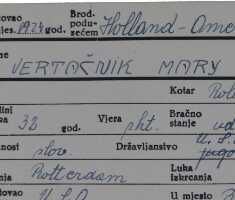 tovao
mjes. 1924 god. Brod. podu- zećem Holland-Ame
me
VERTAČNIK MARY
Kotar
dini
32 god. Vjera rkt. Bračno stanje
nost slov. Državljanstvo U.S.
jugo
nja Rotterdam Luka iskrcanja
tovao U.S.A U mjesto